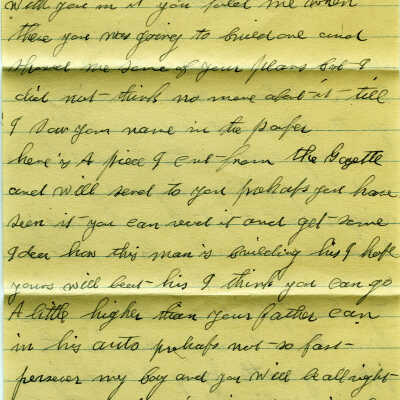 will you in it you told me when
there you was going to build one and
showed me some of your plans but I
did not think no more about it till
I saw your name in the paper
here is A piece I cut from the Gazette
and will send to you prehaps you have
seen it you can read it and get some
Idea how this man is building his I hope
yours will beat his I think you can go
A little higher than your father can
in his auto prehaps not so fast
persever my boy and you will be all right